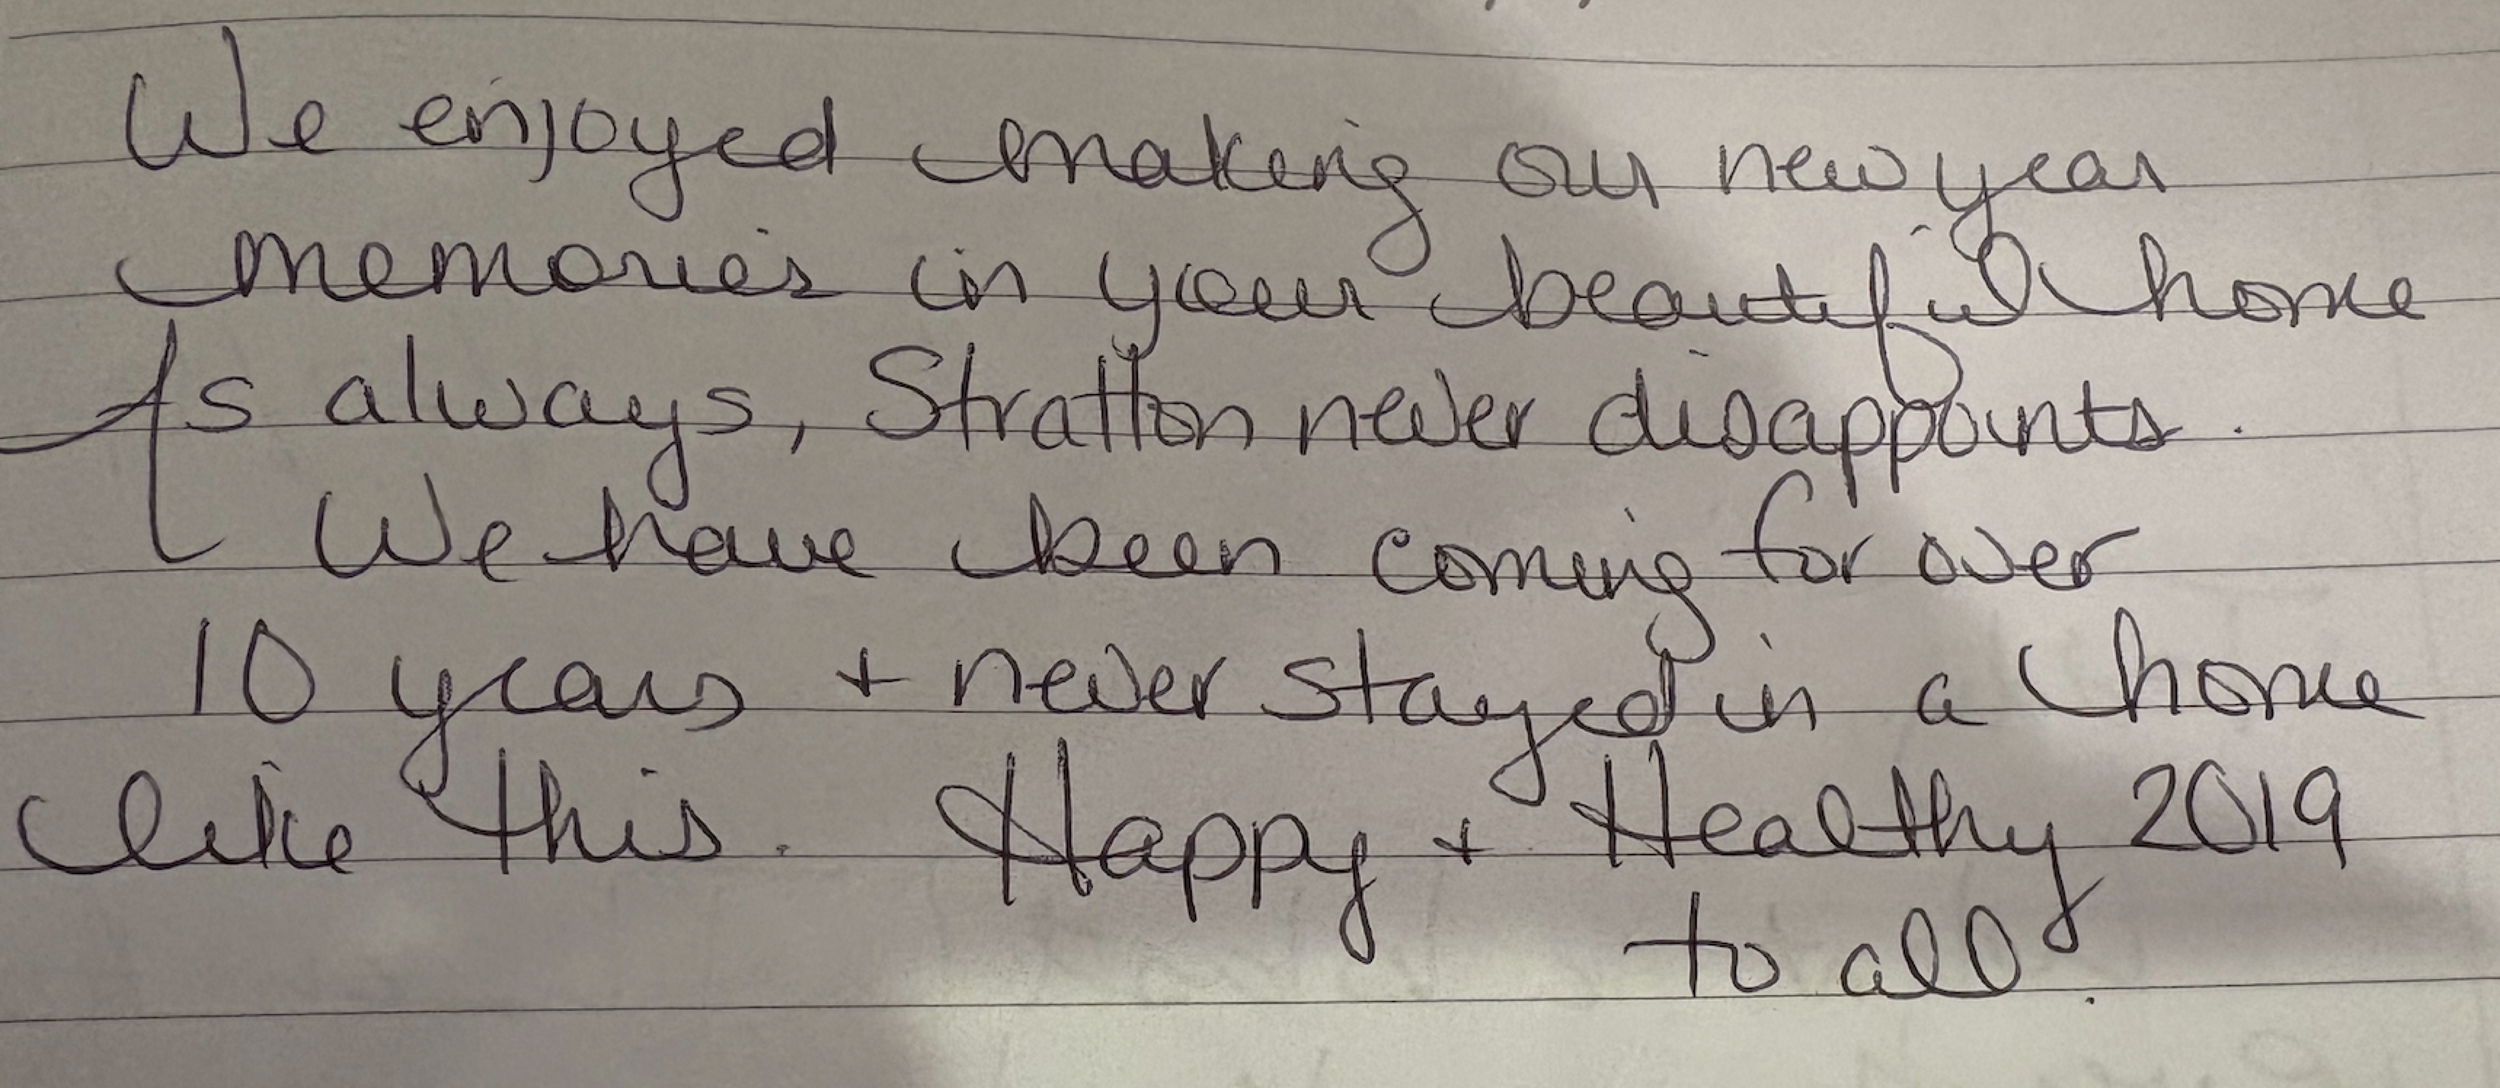 We enjoyed making our new year
memories in your beautiful home
As always, Stratton never disappoints.
We have been coming for over
10 years + never stayed in a home
like this. Happy + Healthy 2019
to all.